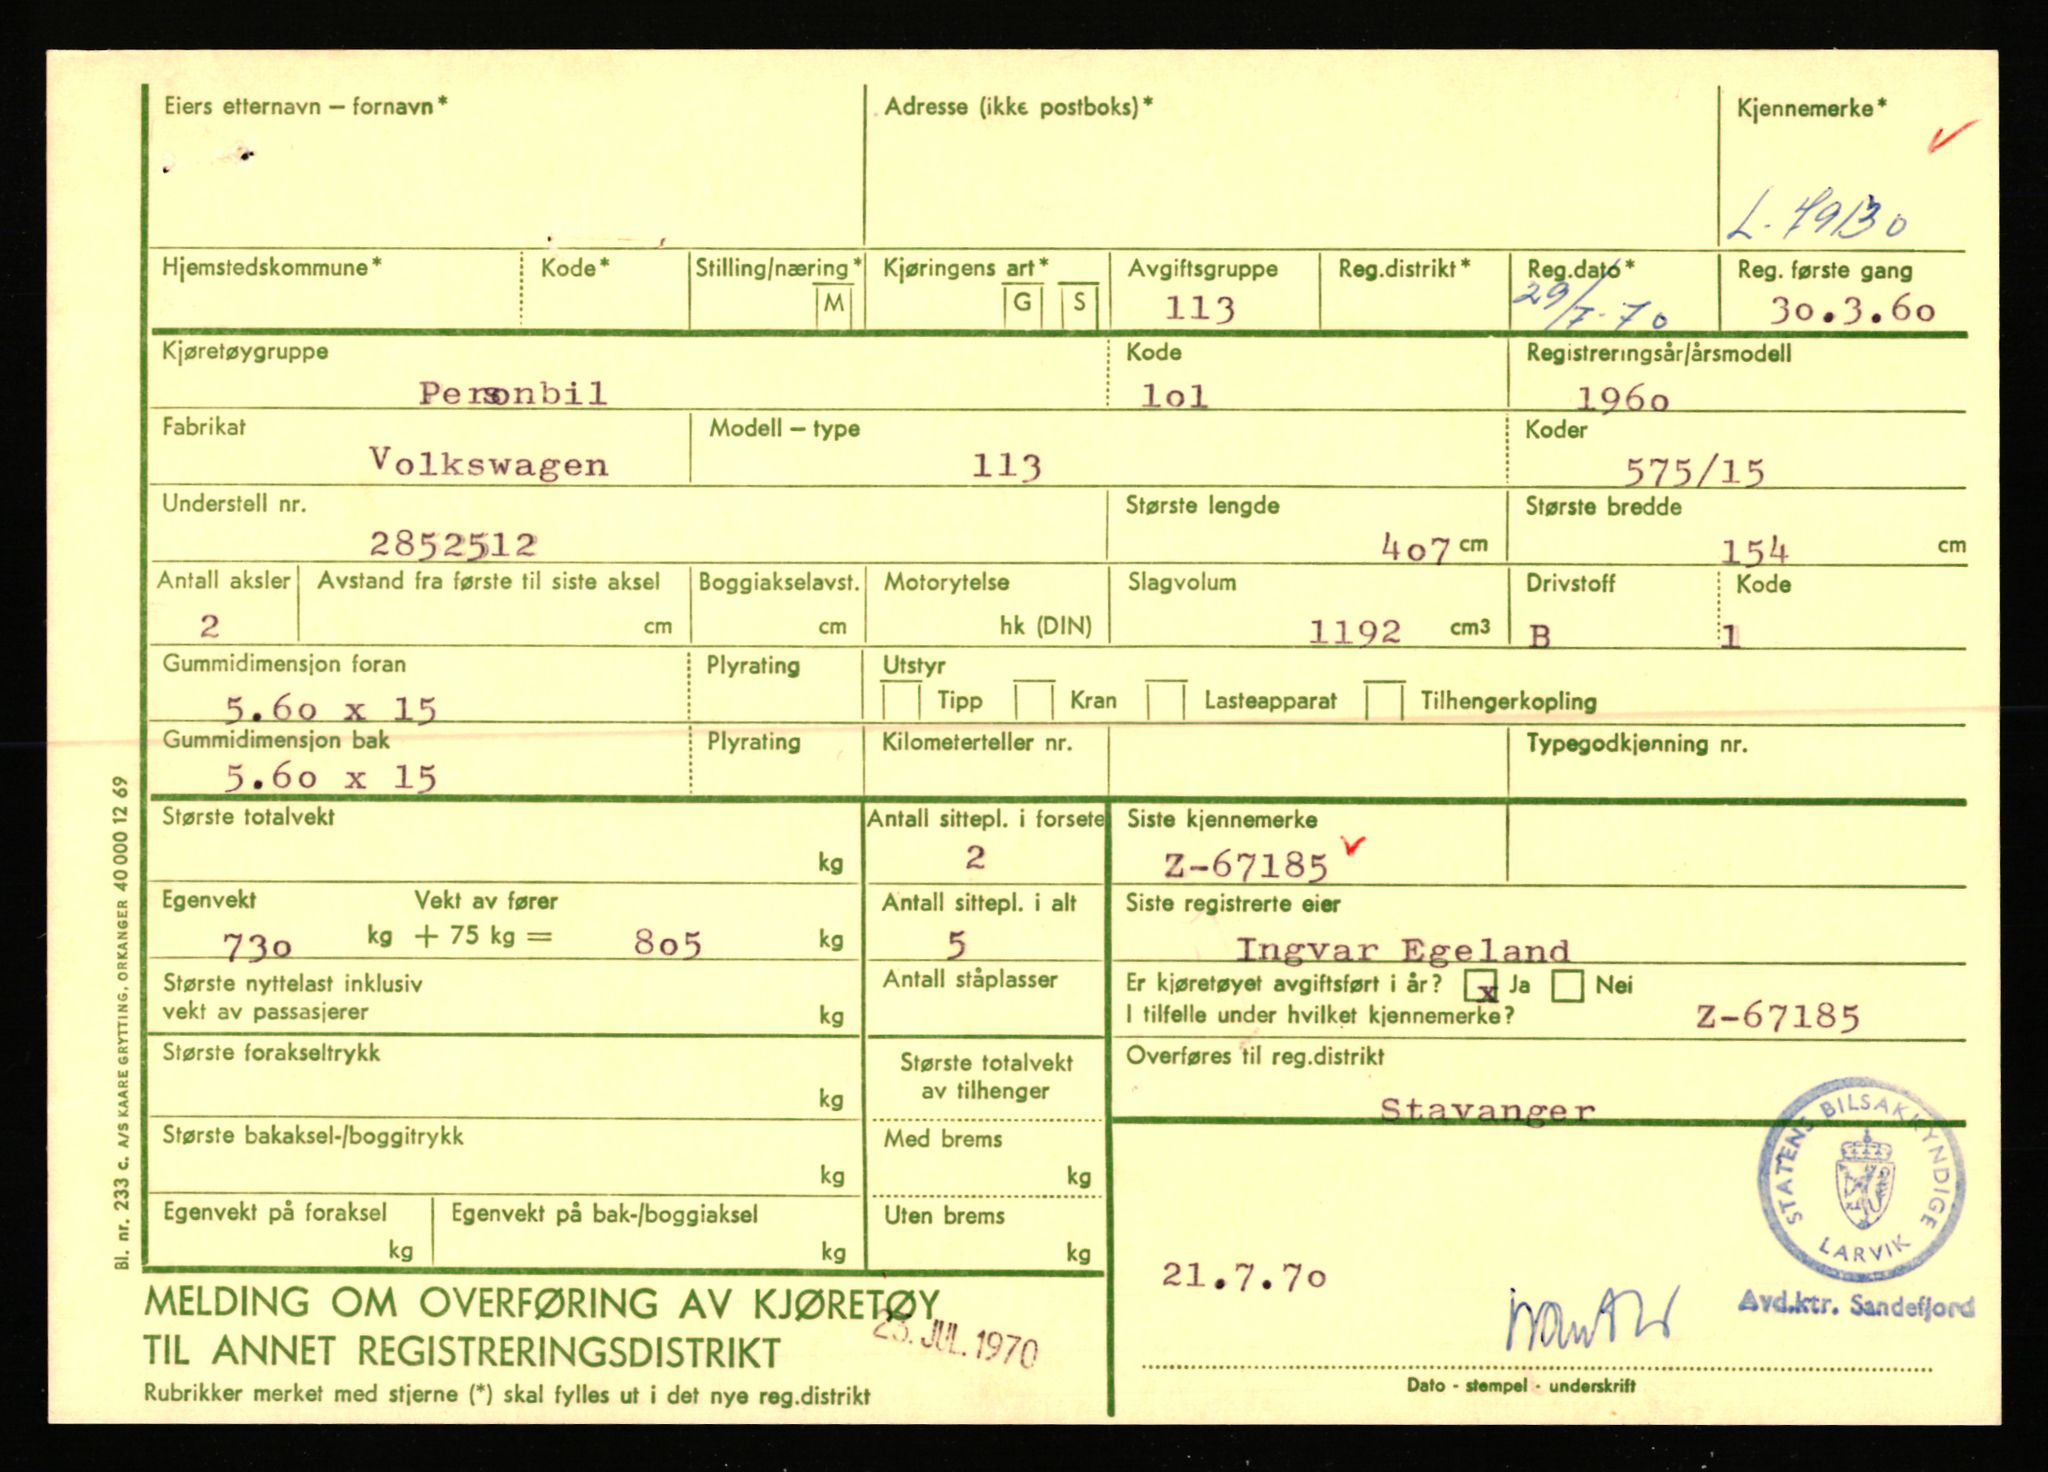 Eiers etternavn – fornavn*
Adresse (ikke postboks)*
Kjennemerke*
L-79130
Hjemstedskommune*
Kode*
Stilling/næring*
M
Kjøringens art*
G
S
Avgiftsgruppe
113
Reg.distrikt*
Reg.dato*
29/7-70
Reg. første gang
30.3.60
Kjøretøygruppe
Personbil
Kode
lol
Registreringsår/årsmodell
1960
Fabrikat
Volkswagen
Modell – type
113
Koder
575/15
Understell nr.
2852512
Største lengde
407 cm
Største bredde
154 cm
Antall aksler
2
Avstand fra første til siste aksel
cm
Boggiakselavst.
cm
Motorytelse
hk (DIN)
Slagvolum
1192 cm3
Drivstoff
B
Kode
1
Gummidimensjon foran
5.60 x 15
Plyrating
Utstyr
Tipp
Kran
Lasteapparat
Tilhengerkopling
Gummidimensjon bak
5.60 x 15
Plyrating
Kilometerteller nr.
Typegodkjenning nr.
Største totalvekt
kg
Antall sittepl. i forsete
2
Siste kjennemerke
Z-67185
Egenvekt
Vekt av fører
730 kg + 75 kg = 805 kg
Antall sittepl. i alt
5
Siste registrerte eier
Ingvar Egeland
Største nyttelast inklusiv
vekt av passasjerer
kg
Antall ståplasser
Er kjøretøyet avgiftsført i år? x Ja Nei
I tilfelle under hvilket kjennemerke? Z-67185
Største forakseltrykk
kg
Største totalvekt
av tilhenger
Overføres til reg.distrikt
Stavanger
Største bakaksel-/boggitrykk
kg
Med brems
kg
Egenvekt på foraksel
kg
Egenvekt på bak-/boggiaksel
kg
Uten brems
kg
STATENS BILSAKKYNDIGE
LARVIK
Avd.ktr. Sandefjord
21.7.70
Dato - stempel - underskrift
MELDING OM OVERFØRING AV KJØRETØY
TIL ANNET REGISTRERINGSDISTRIKT
23. JUL. 1970
Rubrikker merket med stjerne (*) skal fylles ut i det nye reg.distrikt
Bl. nr. 233 c. A/S KAARE GRYTTING, ORKANGER 40 000 12 69